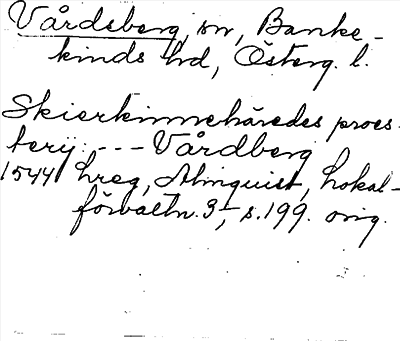 Vårdsberg, sn, Banke-
kinds hd, Österg. l.
Skierkinnehäredes proes-
terij: --- Vårdberg
1544 hreg, Almquist, Lokal-
förvaltn. 3:1, s. 199. orig.